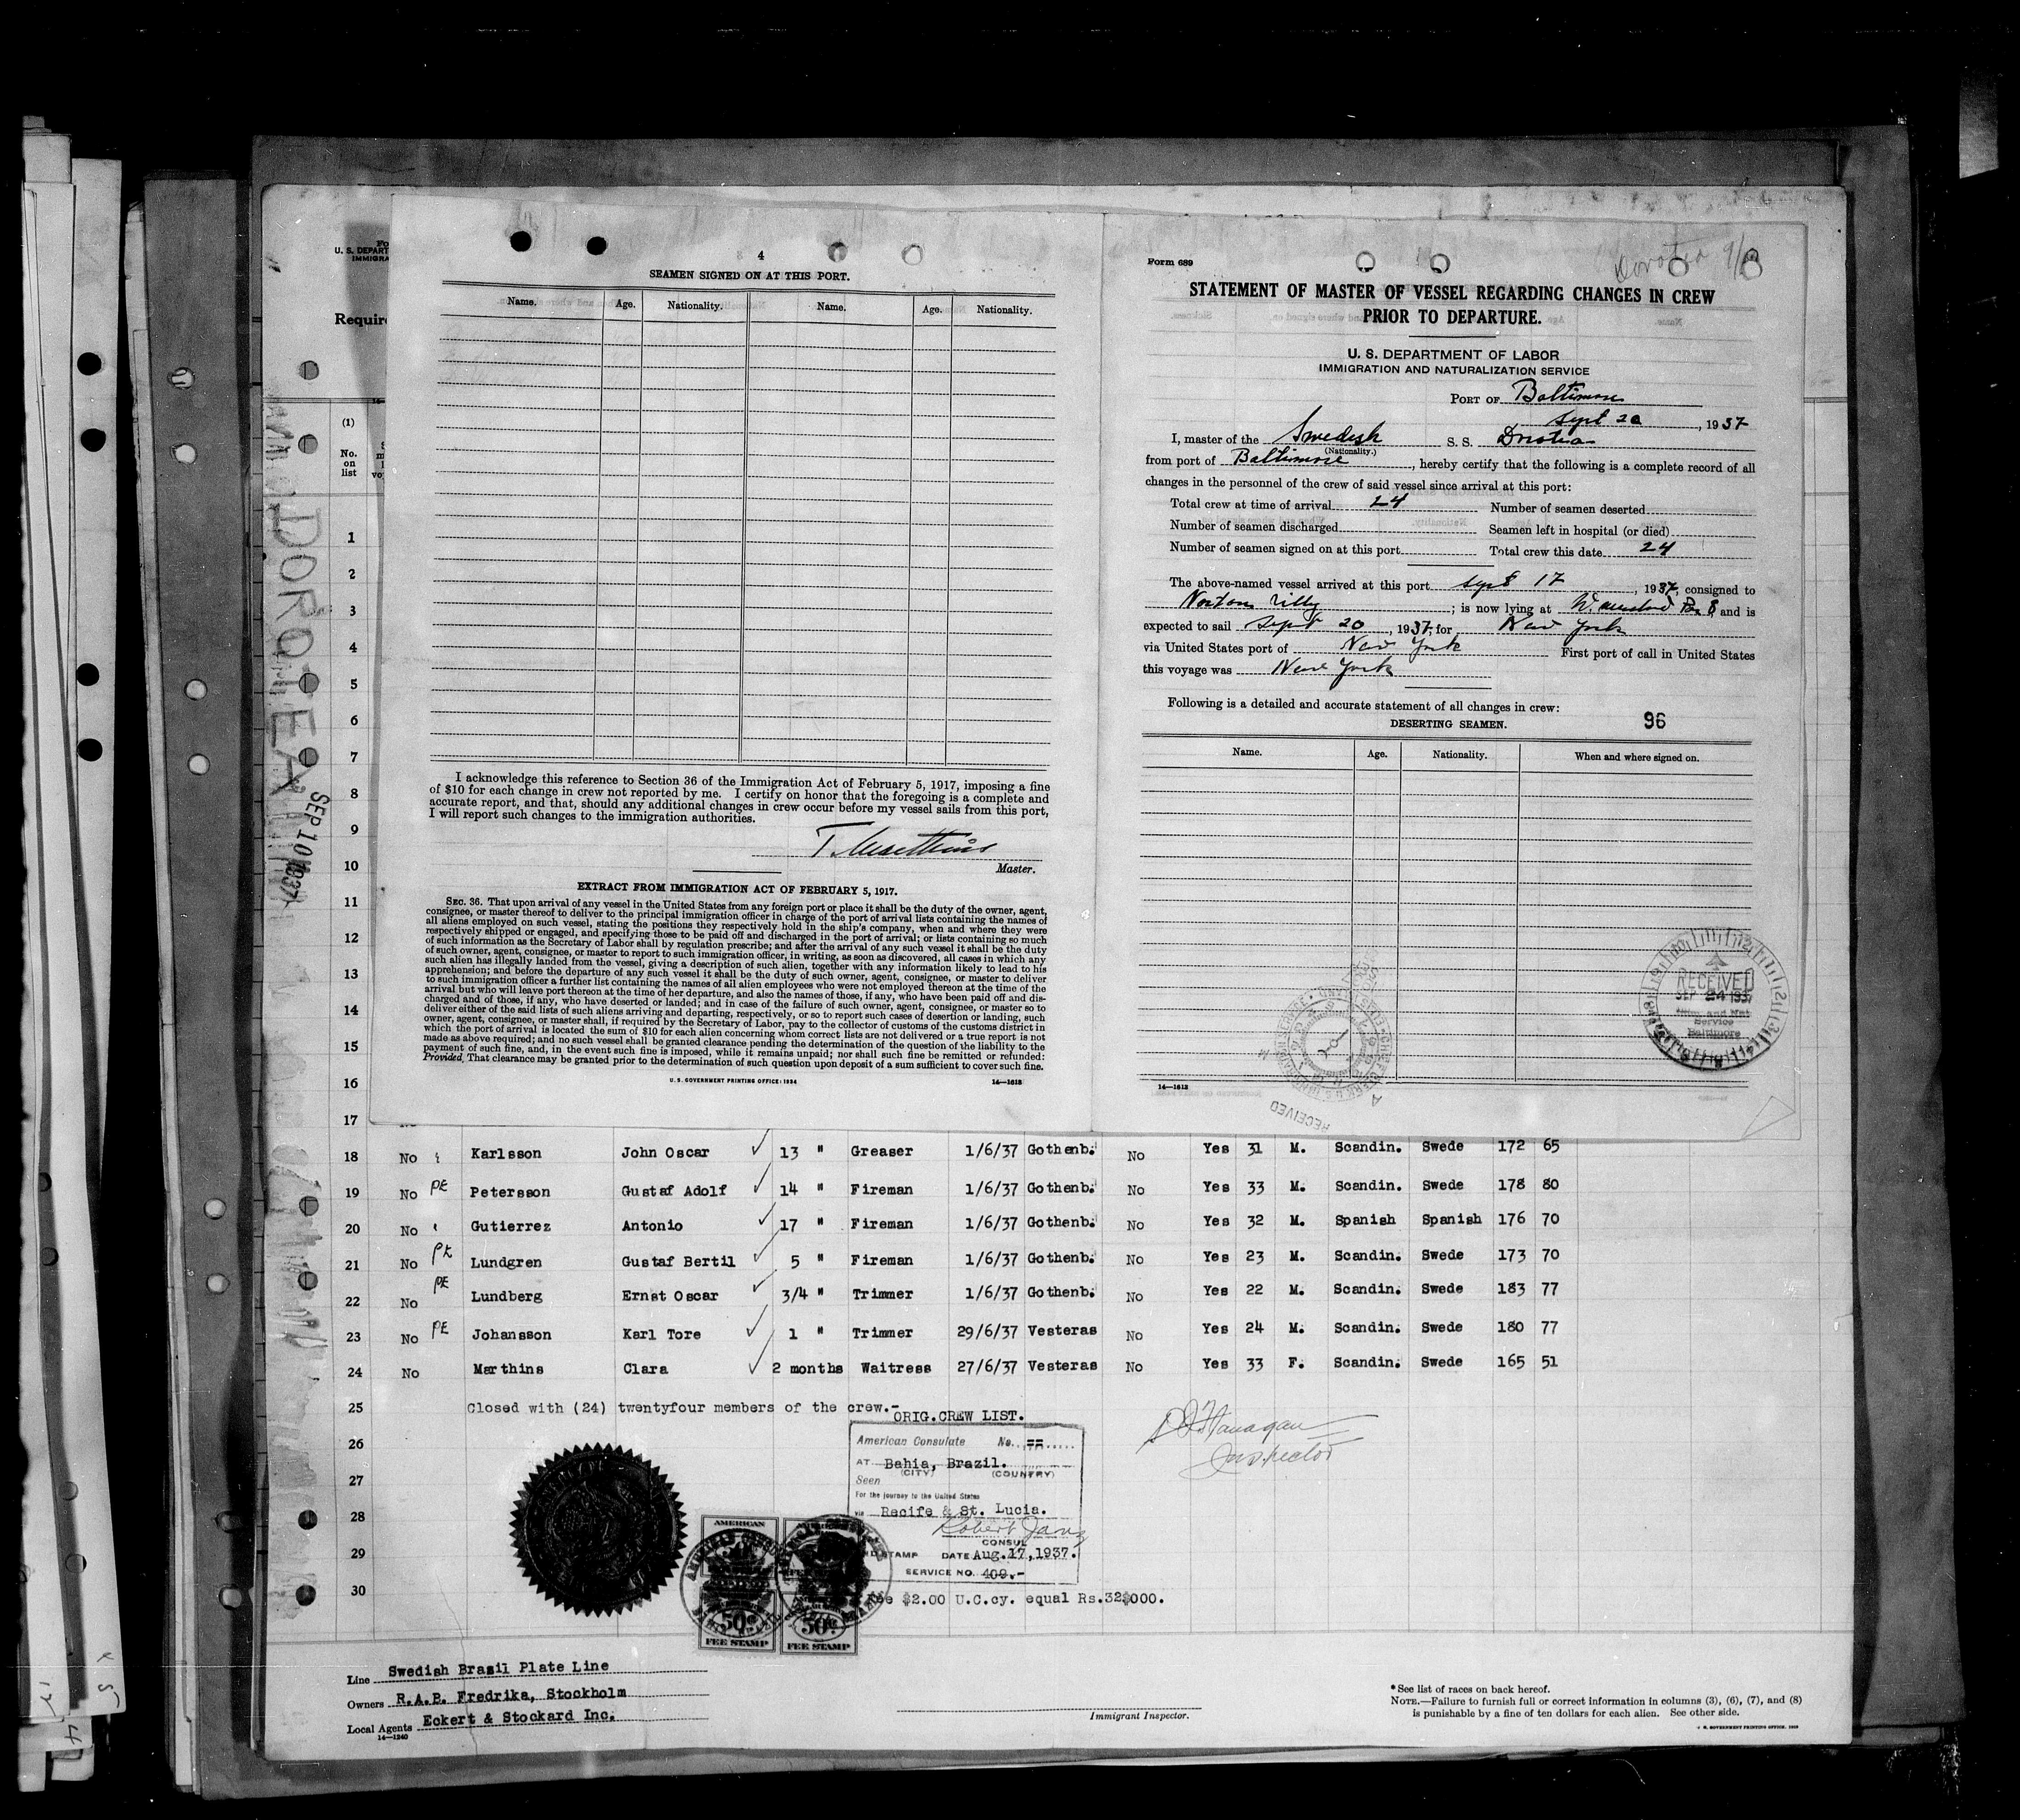 4
SEAMEN SIGNED ON AT THIS PORT.
Name. Age. Nationality. Name. Age. Nationality.
I acknowledge this reference to Section 36 of the Immigration Act of February 5, 1917, imposing a fine
of $10 for each change in crew not reported by me. I certify on honor that the foregoing is a complete and
accurate report, and that, should any additional changes in crew occur before my vessel sails from this port,
I will report such changes to the immigration authorities.
Master.
EXTRACT FROM IMMIGRATION ACT OF FEBRUARY 5, 1917.
SEC. 36. That upon arrival of any vessel in the United States from any foreign port or place it shall be the duty of the owner, agent,
consignee, or master thereof to deliver to the principal immigration officer in charge of the port of arrival lists containing the names of
all aliens employed on such vessel, stating the positions they respectively hold in the ship's company, when and where they were
respectively shipped or engaged, and specifying those to be paid off and discharged in the port of arrival; or lists containing so much
of such information as the Secretary of Labor shall by regulation prescribe; and after the arrival of any such vessel it shall be the duty
of such owner, agent, consignee, or master to report to such immigration officer, in writing, as soon as discovered, all cases in which any
such alien has illegally landed from the vessel, giving a description of such alien, together with any information likely to lead to his
apprehension; and before the departure of any such vessel it shall be the duty of such owner, agent, consignee, or master to deliver
to such immigration officer a further list containing the names of all alien employees who were not employed thereon at the time of the
arrival but who will leave port thereon at the time of her departure, and also the names of those, if any, who have been paid off and dis-
charged and of those, if any, who have deserted or landed; and in case of the failure of such owner, agent, consignee, or master so to
deliver either of the said lists of such aliens arriving and departing, respectively, or so to report such cases of desertion or landing, such
owner, agent, consignee, or master shall, if required by the Secretary of Labor, pay to the collector of customs of the customs district in
which the port of arrival is located the sum of $10 for each alien concerning whom correct lists are not delivered or a true report is not
made as above required; and no such vessel shall be granted clearance pending the determination of the question of the liability to the
payment of such fine, and, in the event such fine is imposed, while it remains unpaid; nor shall such fine be remitted or refunded:
Provided, That clearance may be granted prior to the determination of such question upon deposit of a sum sufficient to cover such fine.
U. S. GOVERNMENT PRINTING OFFICE: 1934 14—1613
Form 689
Dorotea 9/
STATEMENT OF MASTER OF VESSEL REGARDING CHANGES IN CREW
PRIOR TO DEPARTURE.
U. S. DEPARTMENT OF LABOR
IMMIGRATION AND NATURALIZATION SERVICE
PORT OF Baltimore
Sept 20, 1937
I, master of the Swedish S. S. Drotea
(Nationality.)
from port of Baltimore, hereby certify that the following is a complete record of all
changes in the personnel of the crew of said vessel since arrival at this port:
Total crew at time of arrival 24 Number of seamen deserted
Number of seamen discharged Seamen left in hospital (or died)
Number of seamen signed on at this port Total crew this date 24
The above-named vessel arrived at this port Sept 17, 1937, consigned to
Norton Lilly; is now lying at and is
expected to sail Sept 20, 1937, for New York
via United States port of New York First port of call in United States
this voyage was New York
Following is a detailed and accurate statement of all changes in crew:
DESERTING SEAMEN. 96
Name. Age. Nationality. When and where signed on.
RECEIVED
SEP 24 1937
Imm. and Nat.
Service
Baltimore
14—1613
RECEIVED
U. S. DEPART
IMMIGRA
Require
(1)
No.
on
list
DOROTEA
SEP 10 1937
1
2
3
4
5
6
7
8
9
10
11
12
13
14
15
16
17
18 No Karlsson John Oscar 13 " Greaser 1/6/37 Gothenb. No Yes 31 M. Scandin. Swede 172 65
19 No PE Petersson Gustaf Adolf 14 " Fireman 1/6/37 Gothenb. No Yes 33 M. Scandin. Swede 178 80
20 No Gutierrez Antonio 17 " Fireman 1/6/37 Gothenb. No Yes 32 M. Spanish Spanish 176 70
21 No PE Lundgren Gustaf Bertil 5 " Fireman 1/6/37 Gothenb. No Yes 23 M. Scandin. Swede 173 70
22 No PE Lundberg Ernst Oscar 3/4 " Trimmer 1/6/37 Gothenb. No Yes 22 M. Scandin. Swede 183 77
23 No PE Johansson Karl Tore 1 " Trimmer 29/6/37 Vesteras No Yes 24 M. Scandin. Swede 180 77
24 No Marthins Clara 2 months Waitress 27/6/37 Vesteras No Yes 33 F. Scandin. Swede 165 51
25 Closed with (24) twentyfour members of the crew.-
26
27
28
29
30
ORIG.CREW LIST.
American Consulate No. ==
AT Bahia, Brazil.
(CITY) (COUNTRY)
Seen
For the journey to the United States
via Recife & St. Lucia.
Robert Janz
CONSUL
STAMP DATE Aug.17,1937.
SERVICE NO. 409.-
Fee $2.00 U.C.cy. equal Rs.32$000.
AMERICAN
50¢
FEE STAMP
50¢
FEE STAMP
Flanagan
Inspector
Line Swedish Brasil Plate Line
Owners R.A.B. Fredrika, Stockholm
Local Agents Eckert & Stockard Inc.
14—1240
Immigrant Inspector.
*See list of races on back hereof.
NOTE.—Failure to furnish full or correct information in columns (3), (6), (7), and (8)
is punishable by a fine of ten dollars for each alien. See other side.